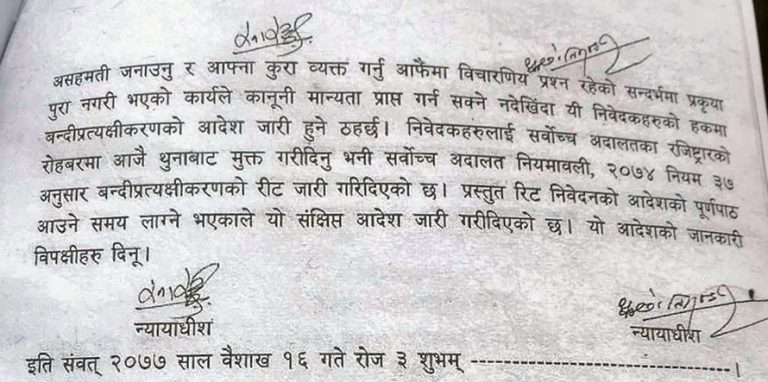 असहमती जनाउनु र आफ्ना कुरा व्यक्त गर्नु आफैंमा विचारणिय प्रश्न रहेको सन्दर्भमा प्रकृया
पुरा नगरी भएको कार्यले कानूनी मान्यता प्राप्त गर्न सक्ने नदेखिंदा यी निवेदकहरुको हकमा
बन्दीप्रत्यक्षीकरणको आदेश जारी हुने ठहर्छ। निवेदकहरुलाई सर्वोच्च अदालतका रजिष्ट्रारको
रोहबरमा आजै थुनाबाट मुक्त गरीदिनु भनी सर्वोच्च अदालत नियमावली, २०७४ नियम ३७
अनुसार बन्दीप्रत्यक्षीकरणको रीट जारी गरिदिएको छ। प्रस्तुत रिट निवेदनको आदेशको पूर्णपाठ
आउने समय लाग्ने भएकाले यो संक्षिप्त आदेश जारी गरीदिएको छ। यो आदेशको जानकारी
विपक्षीहरु दिनू।
न्यायाधीश न्यायाधीश
इति संवत् २०७७ साल वैशाख १६ गते रोज ३ शुभम् -----------------------------।